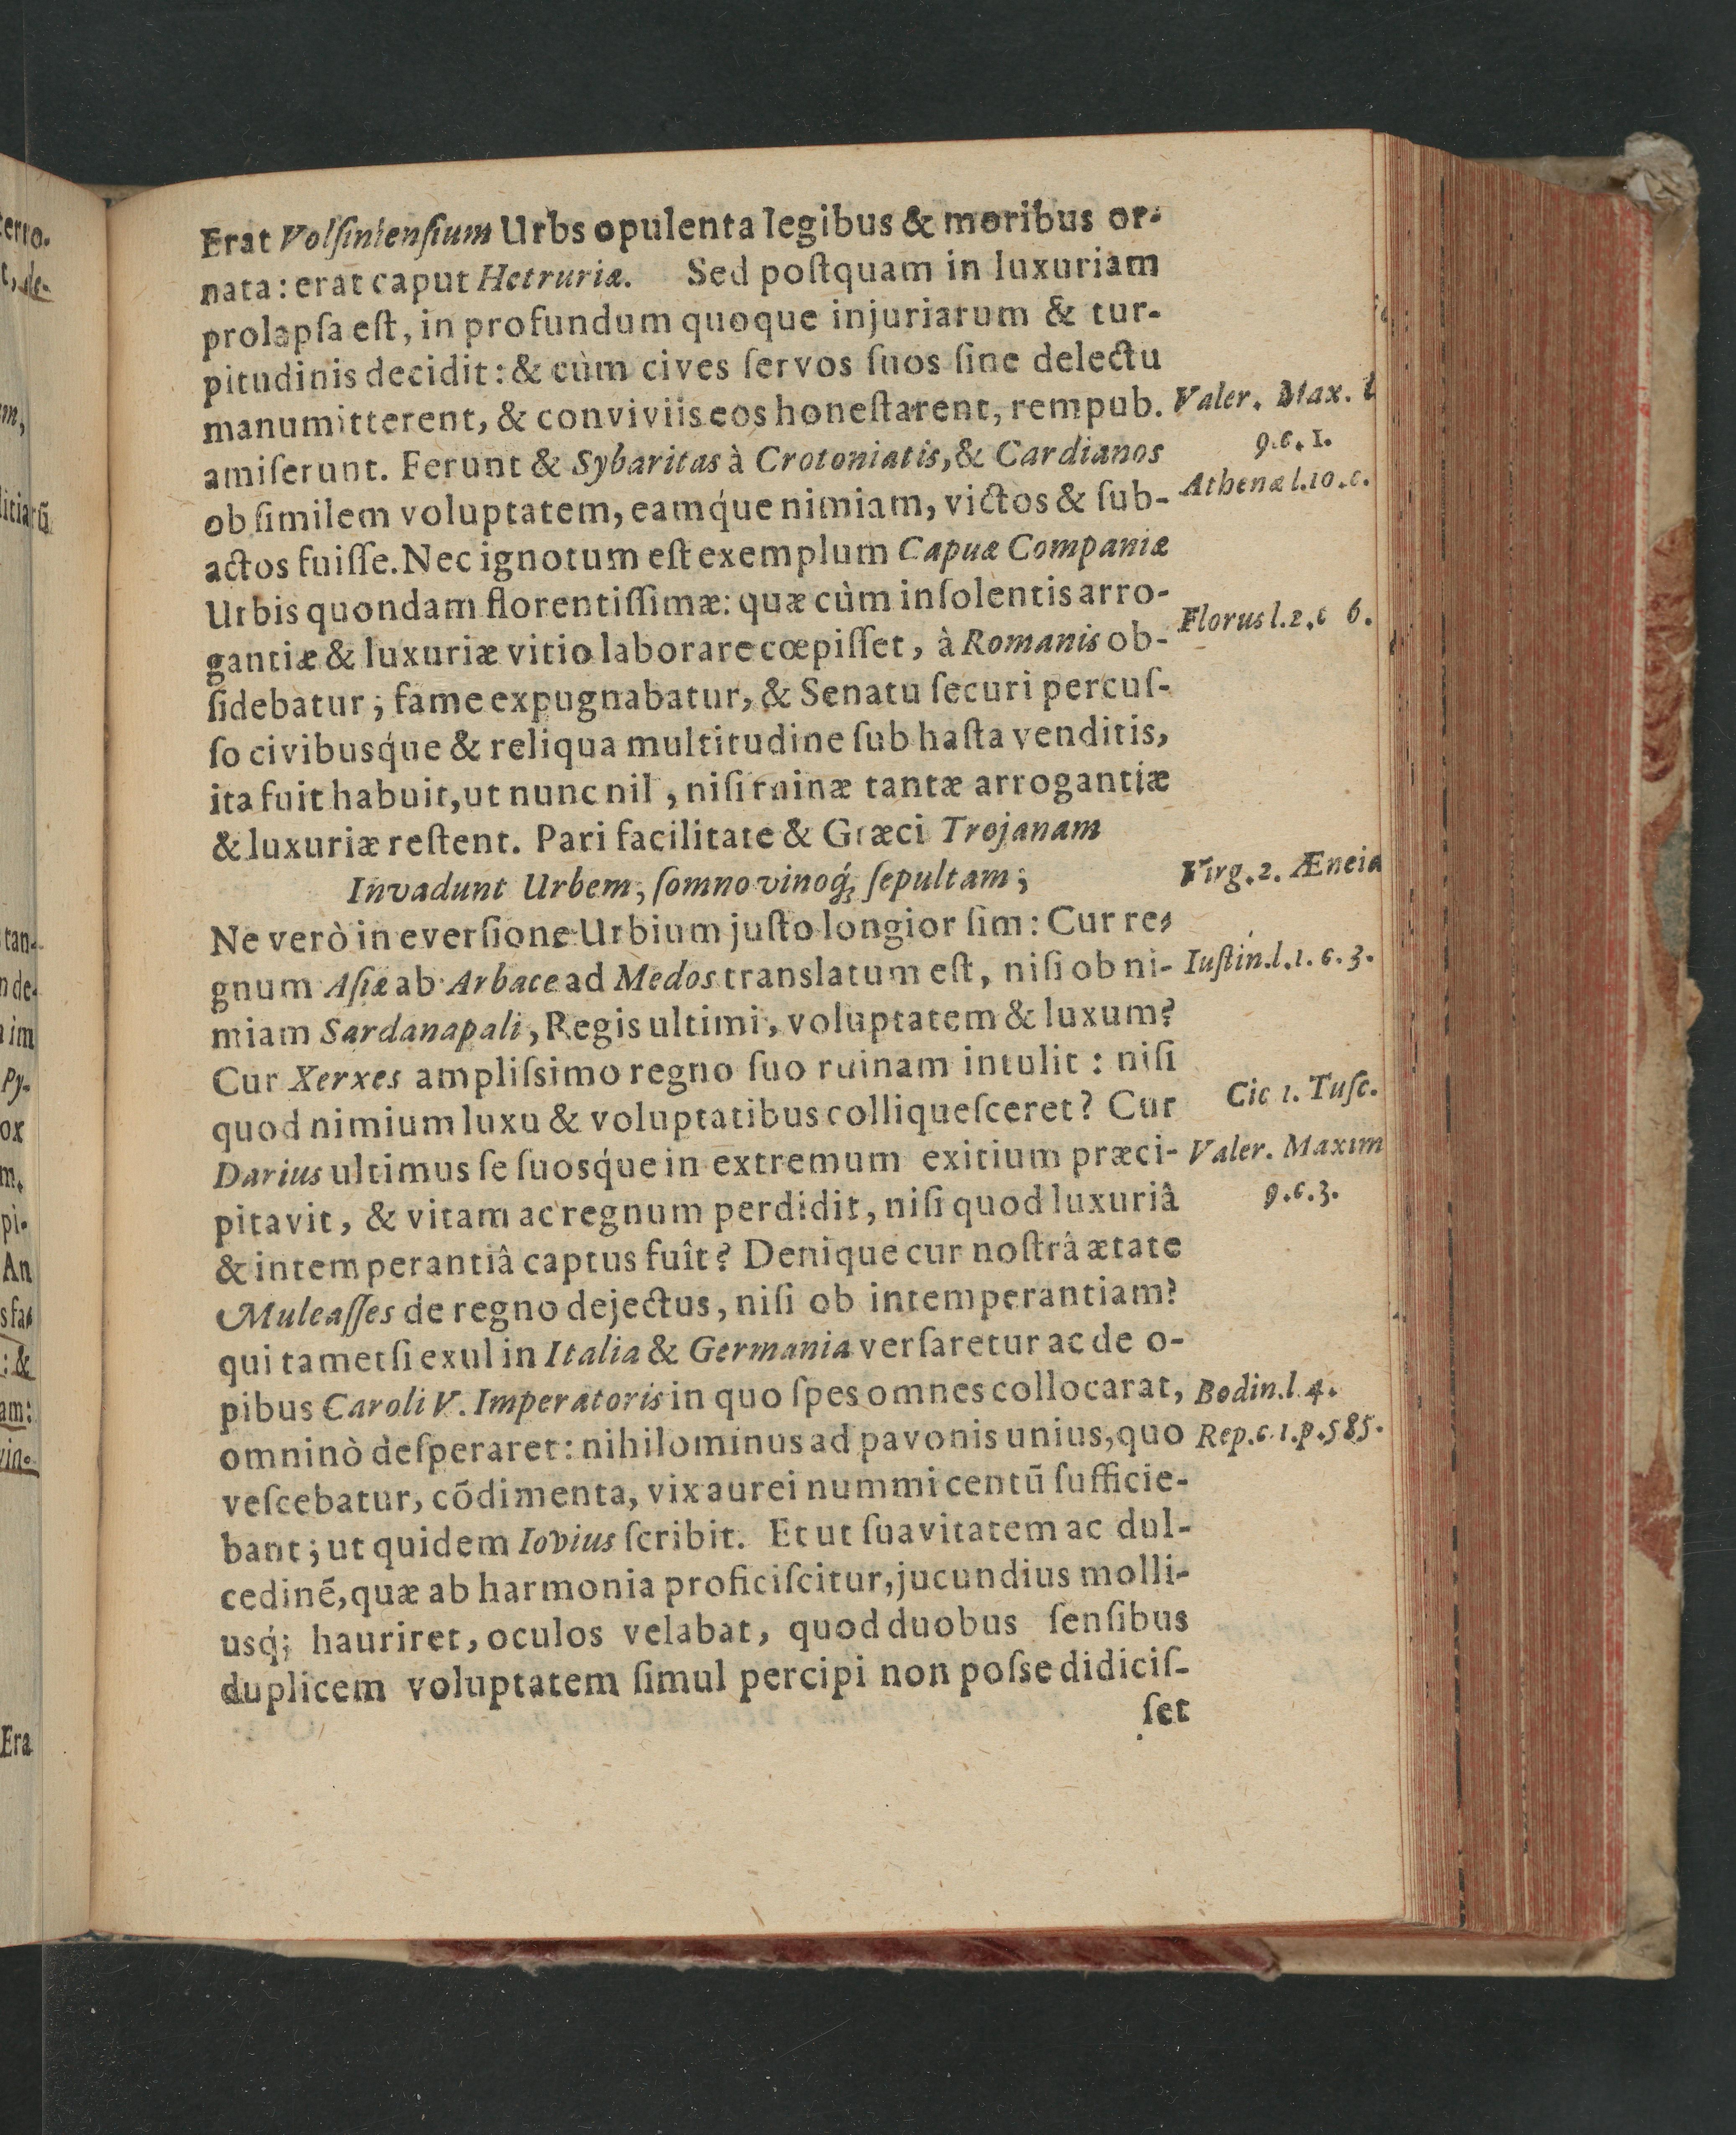 Erat Volſinienſium Urbs opulenta legibus & moribus or-
nata: erat caput Hetruriæ. Sed poſtquam in luxuriam
prolapſa eſt, in profundum quoque injuriarum & tur-
pitudinis decidit: & cùm cives ſervos ſuos ſine delectu
manumitterent, & conviviis eos honeſtarent, rempub.
Valer. Max. l
9.c.1.
amiſerunt. Ferunt & Sybaritas à Crotoniatis, & Cardianos
ob ſimilem voluptatem, eamq́ue nimiam, victos & ſub-
Athenæ l.10.c.
actos fuiſſe. Nec ignotum eſt exemplum Capuæ Companiæ
Urbis quondam florentiſſimæ: quæ cùm inſolentis arro-
gantiæ & luxuriæ vitio laborare cœpiſſet, à Romanis ob-
Florus l.2.c 6.
ſidebatur; fame expugnabatur, & Senatu ſecuri percuſ-
ſo civibusq́ue & reliqua multitudine ſub haſta venditis,
ita fuit habuit, ut nunc nil, niſi ruinæ tantæ arrogantiæ
& luxuriæ reſtent. Pari facilitate & Græci Trojanam
Invadunt Urbem, ſomno vinoq́; ſepultam;
Virg.2. Æneid
Ne verò in everſione Urbium juſto longior ſim: Cur re-
gnum Aſiæ ab Arbace ad Medos translatum eſt, niſi ob ni-
Iuſtin.l.1.c.3.
miam Sardanapali, Regis ultimi, voluptatem & luxum?
Cur Xerxes ampliſsimo regno ſuo ruinam intulit: niſi
quod nimium luxu & voluptatibus colliqueſceret? Cur
Cic 1. Tuſc.
Darius ultimus ſe ſuosq́ue in extremum exitium præci-
Valer. Maxim
9.c.3.
pitavit, & vitam ac regnum perdidit, niſi quod luxuriâ
& intemperantiâ captus fuît? Denique cur noſtrâ ætate
Muleaſſes de regno dejectus, niſi ob intemperantiam?
qui tametſi exul in Italia & Germania verſaretur ac de o-
pibus Caroli V. Imperatoris in quo ſpes omnes collocarat,
Bodin.l.4.
omninò deſperaret: nihilominus ad pavonis unius, quo
Rep.c.1.p.585.
veſcebatur, cõdimenta, vix aurei nummi centũ ſufficie-
bant; ut quidem Iovius ſcribit. Et ut ſuavitatem ac dul-
cedinẽ, quæ ab harmonia proficiſcitur, jucundius molli-
usq́; hauriret, oculos velabat, quod duobus ſenſibus
duplicem voluptatem ſimul percipi non poſse didiciſ-
ſet